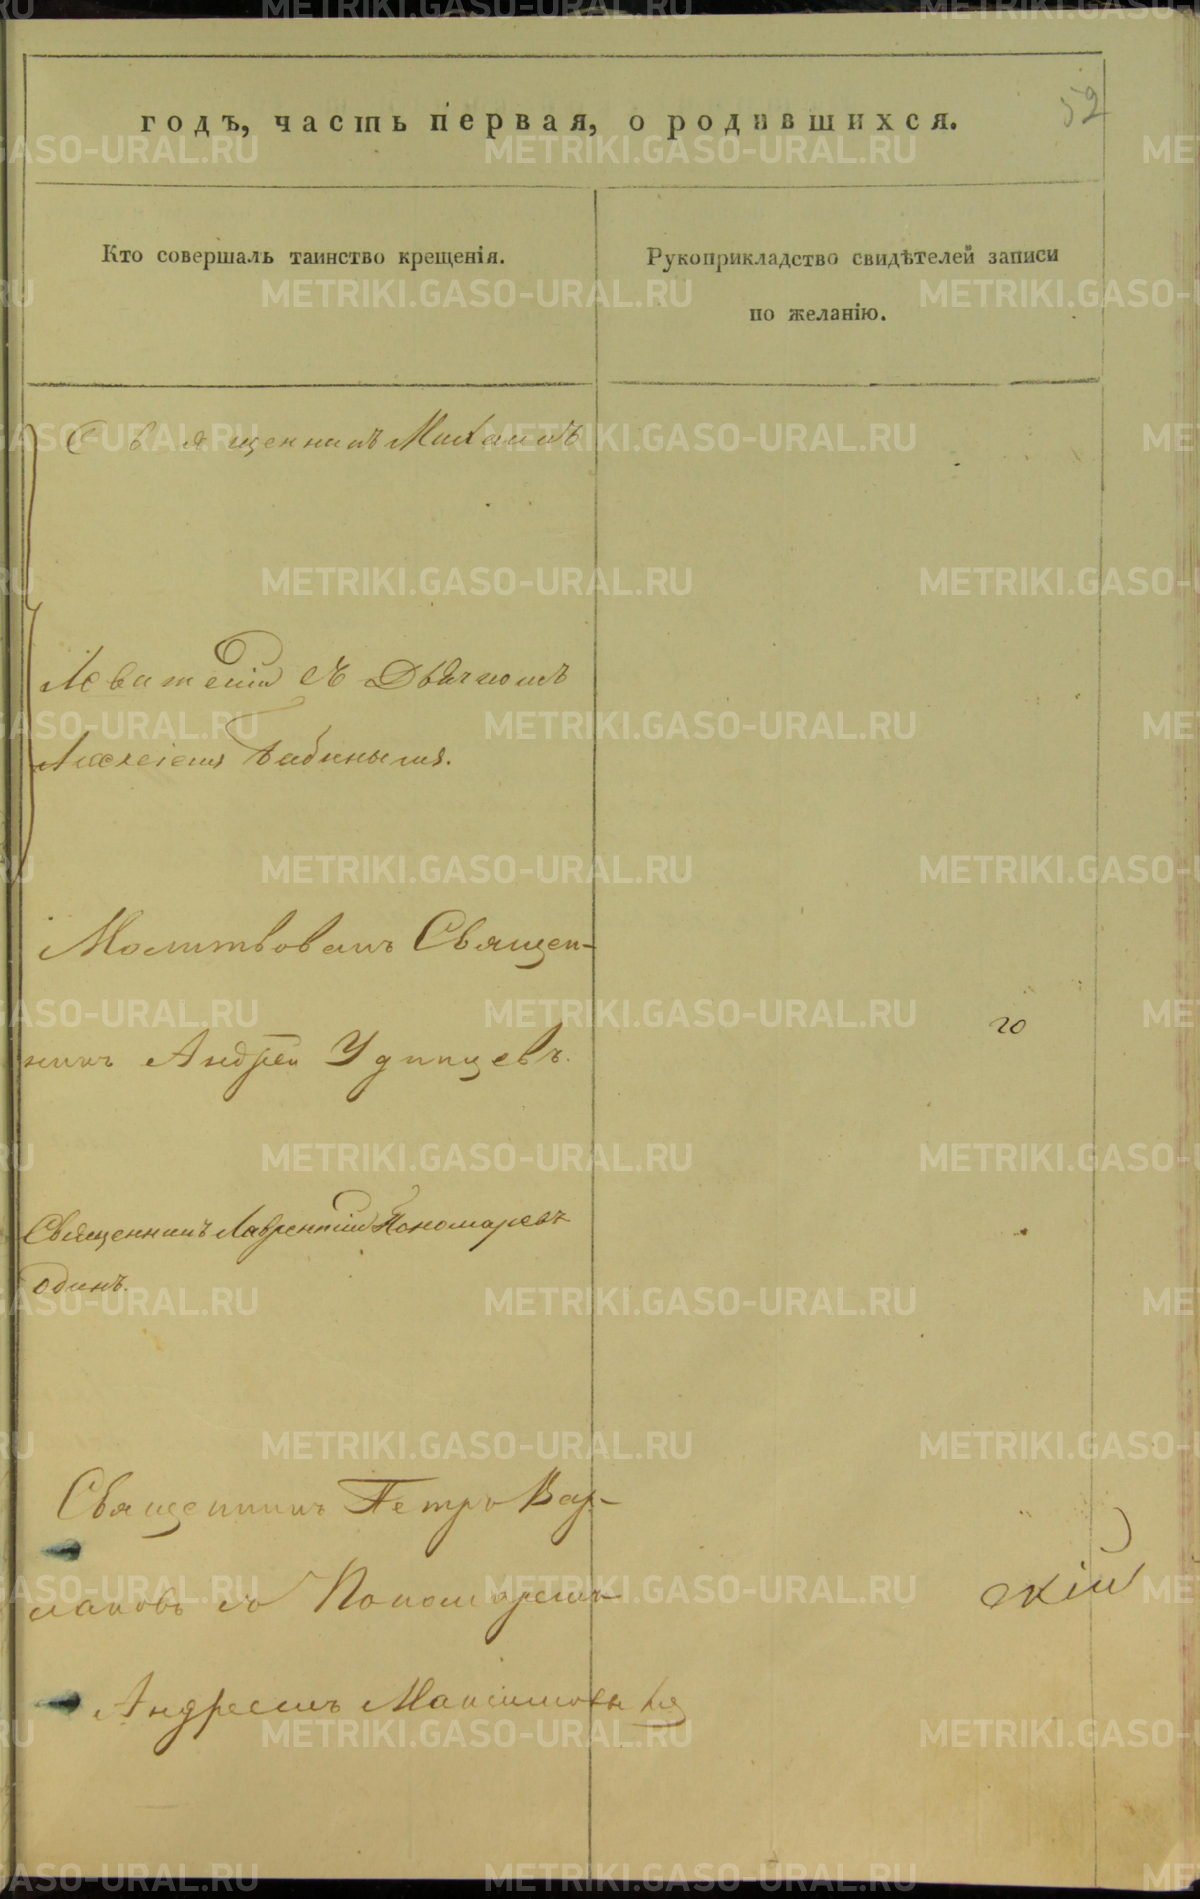 52
годъ, часть первая, о родившихся.
Кто совершалъ таинство крещенія.
Рукоприкладство свидѣтелей записи
по желанію.
Священникъ Михаилъ
съ Дьячкомъ
Алексіемъ Бабинымъ.
Молитвовалъ Священ-
никъ Андрей Удинцевъ.
го
Священникъ Лаврентій Пономаревъ
одинъ.
Священникъ Петръ Вар-
лаковъ съ Пономаремъ
скій
Андреемъ Максимовымъ
METRIKI.GASO-URAL.RU